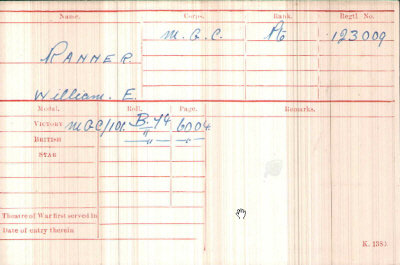 Name. Corps. Rank. Regtl No.
M.G.C. Pte 123009
RANNER
William. E.
Medal. Roll. Page. Remarks.
VICTORY MGC/101 B.74 6004
BRITISH " "
STAR
Theatre of War first served in
Date of entry therein
K. 1380